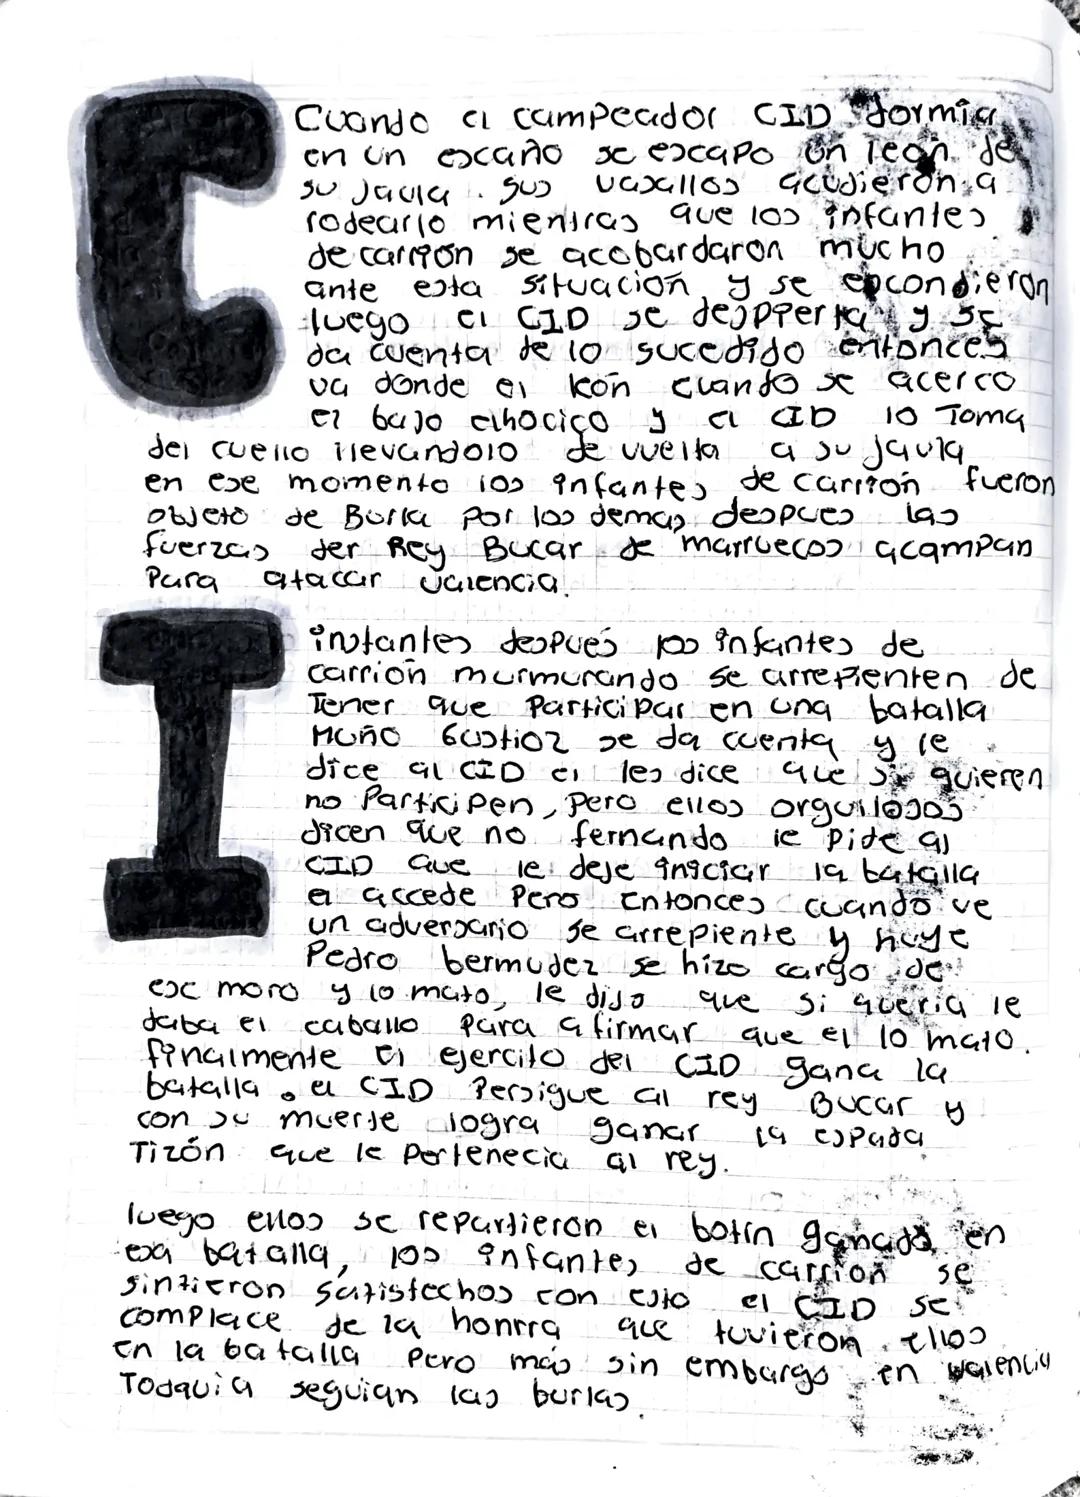 C
Cuando el campeador CID dormia
en un escaño se escapo un leon de
su Jaula . sus vasallos acudieron a
rodearlo mientras que los infantes
de carrión se acobardaron mucho
ante esta situación y se escondieron
luego el CID se despierta y se
da cuenta de lo sucedido entonces
va donde el león cuando se acerco
el bajo el hocico y el CID lo Toma
del cuello llevandolo de vuelta a su jaula
en ese momento los infantes de carrión fueron
objeto de Burla por los demas, despues las
fuerzas der Rey Bucar de marruecos acampan
Para atacar valencia.
I
instantes después los infantes de
carrión murmurando se arrepienten de
Tener que Participar en una batalla
Muño Gustioz se da cuenta y le
dice al CID el les dice que si quieren
no Participen, Pero ellos orgullosos
dicen que no fernando le Pide al
CID que le deje iniciar la batalla
el accede Pero Entonces cuando ve
un adversario se arrepiente y huye
Pedro bermudez se hizo cargo de
ese moro y lo mato, le dijo que si queria le
daba el caballo Para afirmar que el lo mato.
finalmente el ejercito del CID gana la
batalla . el CID Persigue al rey Bucar y
con su muerte logra ganar la espada
Tizón que le Pertenecia al rey.
luego ellos se repartieron el botín ganado en
esa batalla, los infantes de carrión se
sintieron satisfechos con esto el CID se
complace de la honrra que tuvieron ellos
En la batalla Pero más sin embargo en valencia
Todavia seguian las burlas.